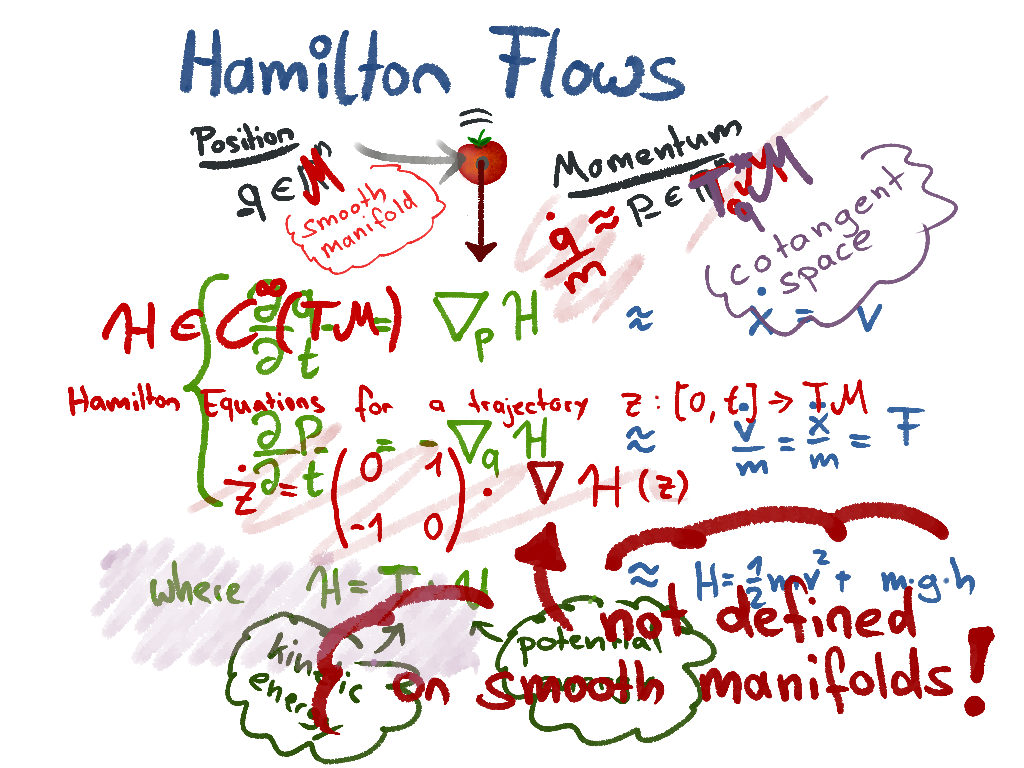 Hamilton Flows
Position
q ∈ M
smooth
manifold
Momentum
p ∈ T*qM
q̇/m ≈
cotangent
space
H ∈ C∞(TM)
∂q/∂t = ∇p H ≈ ẋ = v
Hamilton Equations for a trajectory z : [0, t] → TM
∂p/∂t = -∇q H ≈ v̇/m = ẍ/m = F
ż = (0 1 -1 0) · ∇ H (z)
where H = T + U ≈ H = 1/2 m v² + m·g·h
kinetic
energy
potential
not defined
on smooth manifolds!